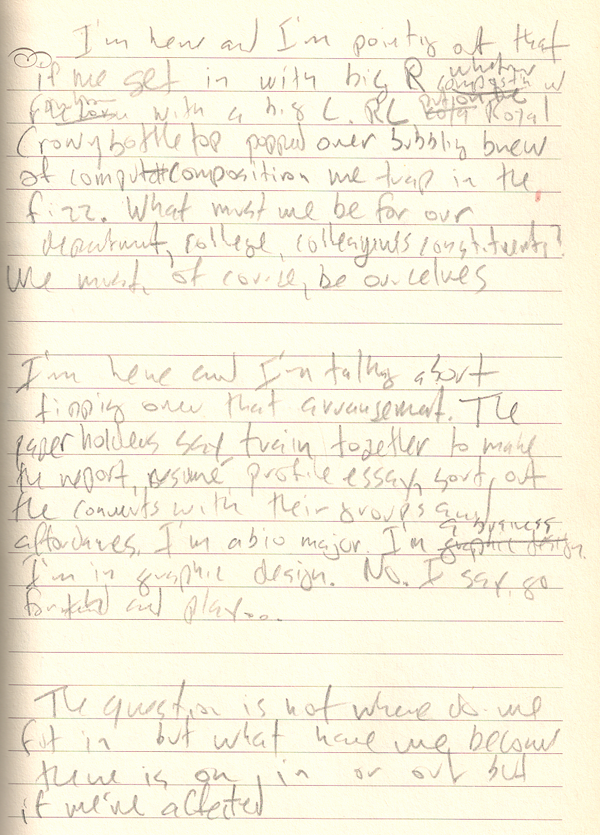 I'm here and I'm pointing out that
if we get in with big R whether composition w
with a big C. RC put on the Royal
Crowny bottle top popped over bubbling brew
of composition we trap in the
fizz. What must we be for our
department, college, colleagues constituents?
We must, of course, be ourselves
I'm here and I'm talking about
tipping over that arrangement. The
paper holders say, train together to make
the report, resume, profile essay, sort out
the converts with their groups and
affordances. I'm a bio major. I'm a business graphic design.
I'm in graphic design. No. I say, go
forward and play...
The question is not where do we
fit in but what have we become
there is on, in or out but
if we've affected